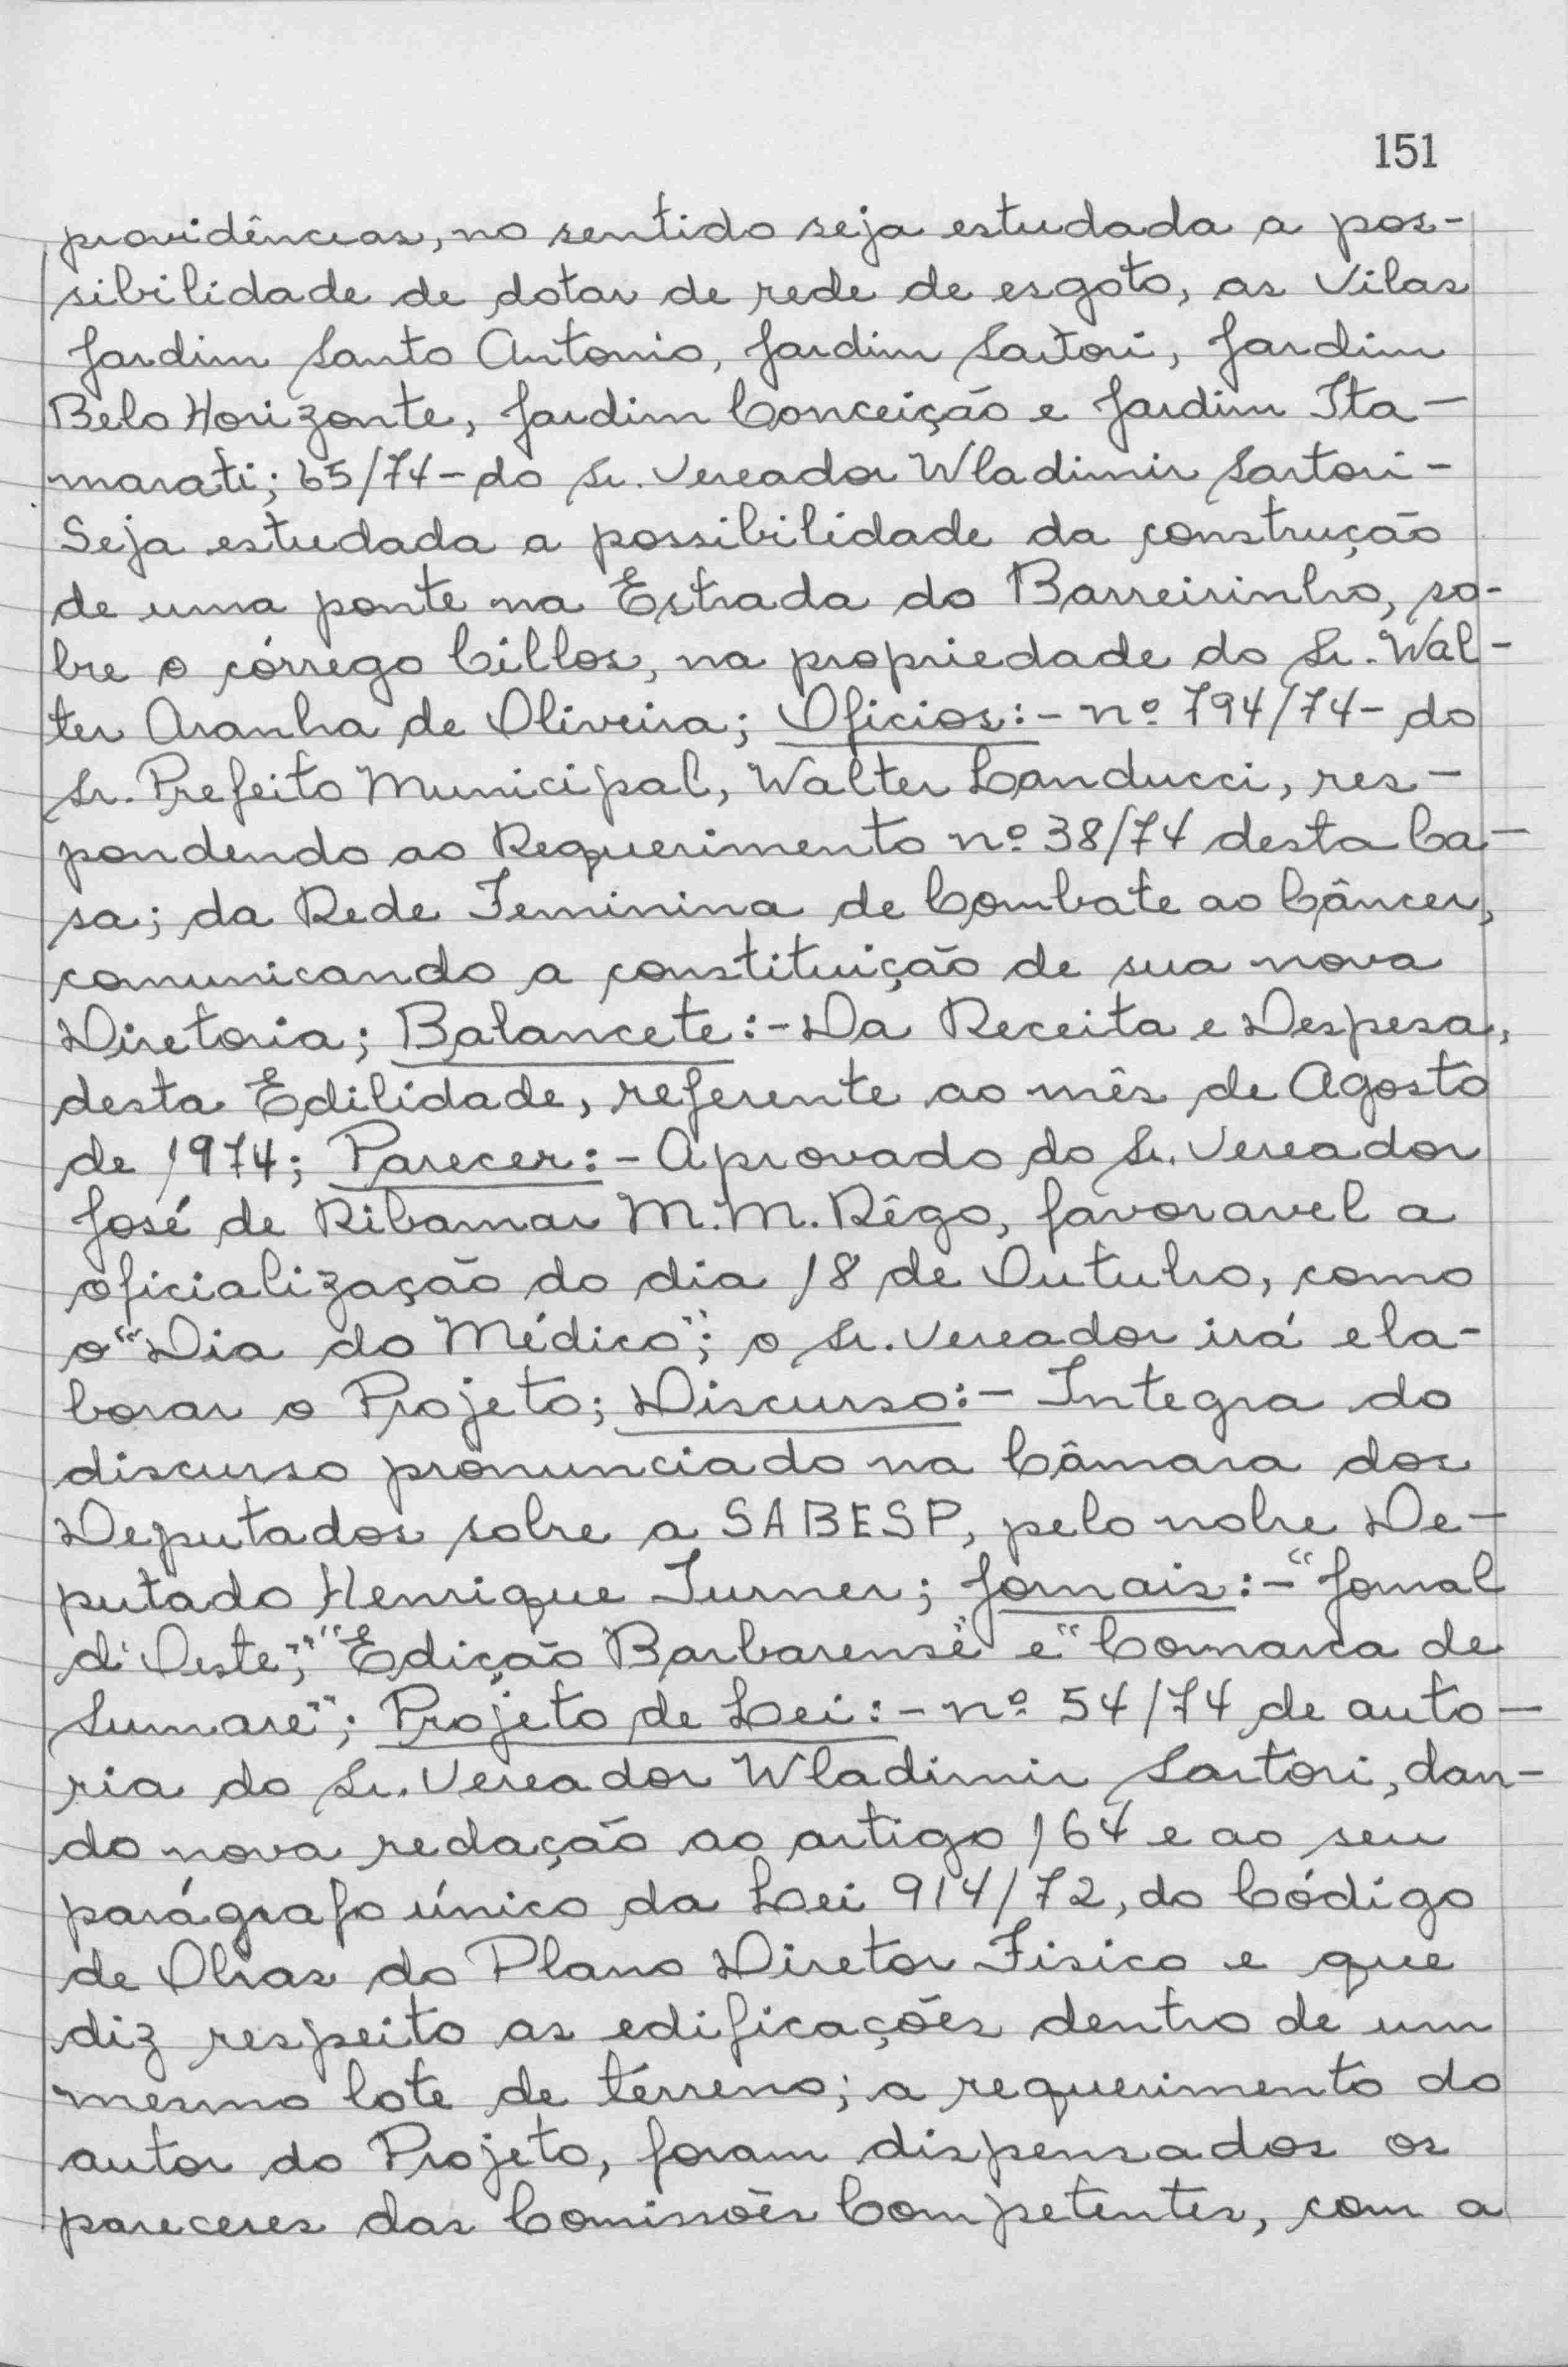 151
providências, no sentido seja estudada a pos-
sibilidade de dotar de rede de esgoto, as Vilas
Jardim Santo Antonio, Jardim Sartori, Jardim
Belo Horizonte, Jardim Conceição e Jardim Ita-
marati; 65/74 - do Sr. Vereador Wladimir Sartori -
Seja estudada a possibilidade da construção
de uma ponte na Estrada do Barreirinho, so-
bre o córrego Cillos, na propriedade do Sr. Wal-
ter Aranha de Oliveira; Oficios:- nº 794/74 - do
Sr. Prefeito Municipal, Walter Landucci, res-
pondendo ao Requerimento nº 38/74 desta Ca-
sa; da Rede Feminina de Combate ao Câncer,
comunicando a constituição de sua nova
Diretoria; Balancete:- Da Receita e Despesa,
desta Edilidade, referente ao mês de Agosto
de 1974; Parecer:- Aprovado do Sr. Vereador
José de Ribamar M. M. Rêgo, favoravel a
oficialização do dia 18 de Outubro, como
o "Dia do Médico"; o Sr. Vereador irá ela-
borar o Projeto; Discurso:- Integra do
discurso pronunciado na Câmara dos
Deputados sobre a SABESP, pelo nobre De-
putado Henrique Turner; Jornais:- "Jornal
d'Oeste", "Edição Barbarense" e "Comarca de
Sumaré"; Projeto de Lei:- nº 54/74 de auto-
ria do Sr. Vereador Wladimir Sartori, dan-
do nova redação ao artigo 164 e ao seu
parágrafo único da Lei 914/72, do Código
de Obras do Plano Diretor Fisico e que
diz respeito as edificações dentro de um
mesmo lote de terreno; a requerimento do
autor do Projeto, foram dispensados os
pareceres das Comissões Competentes, com a